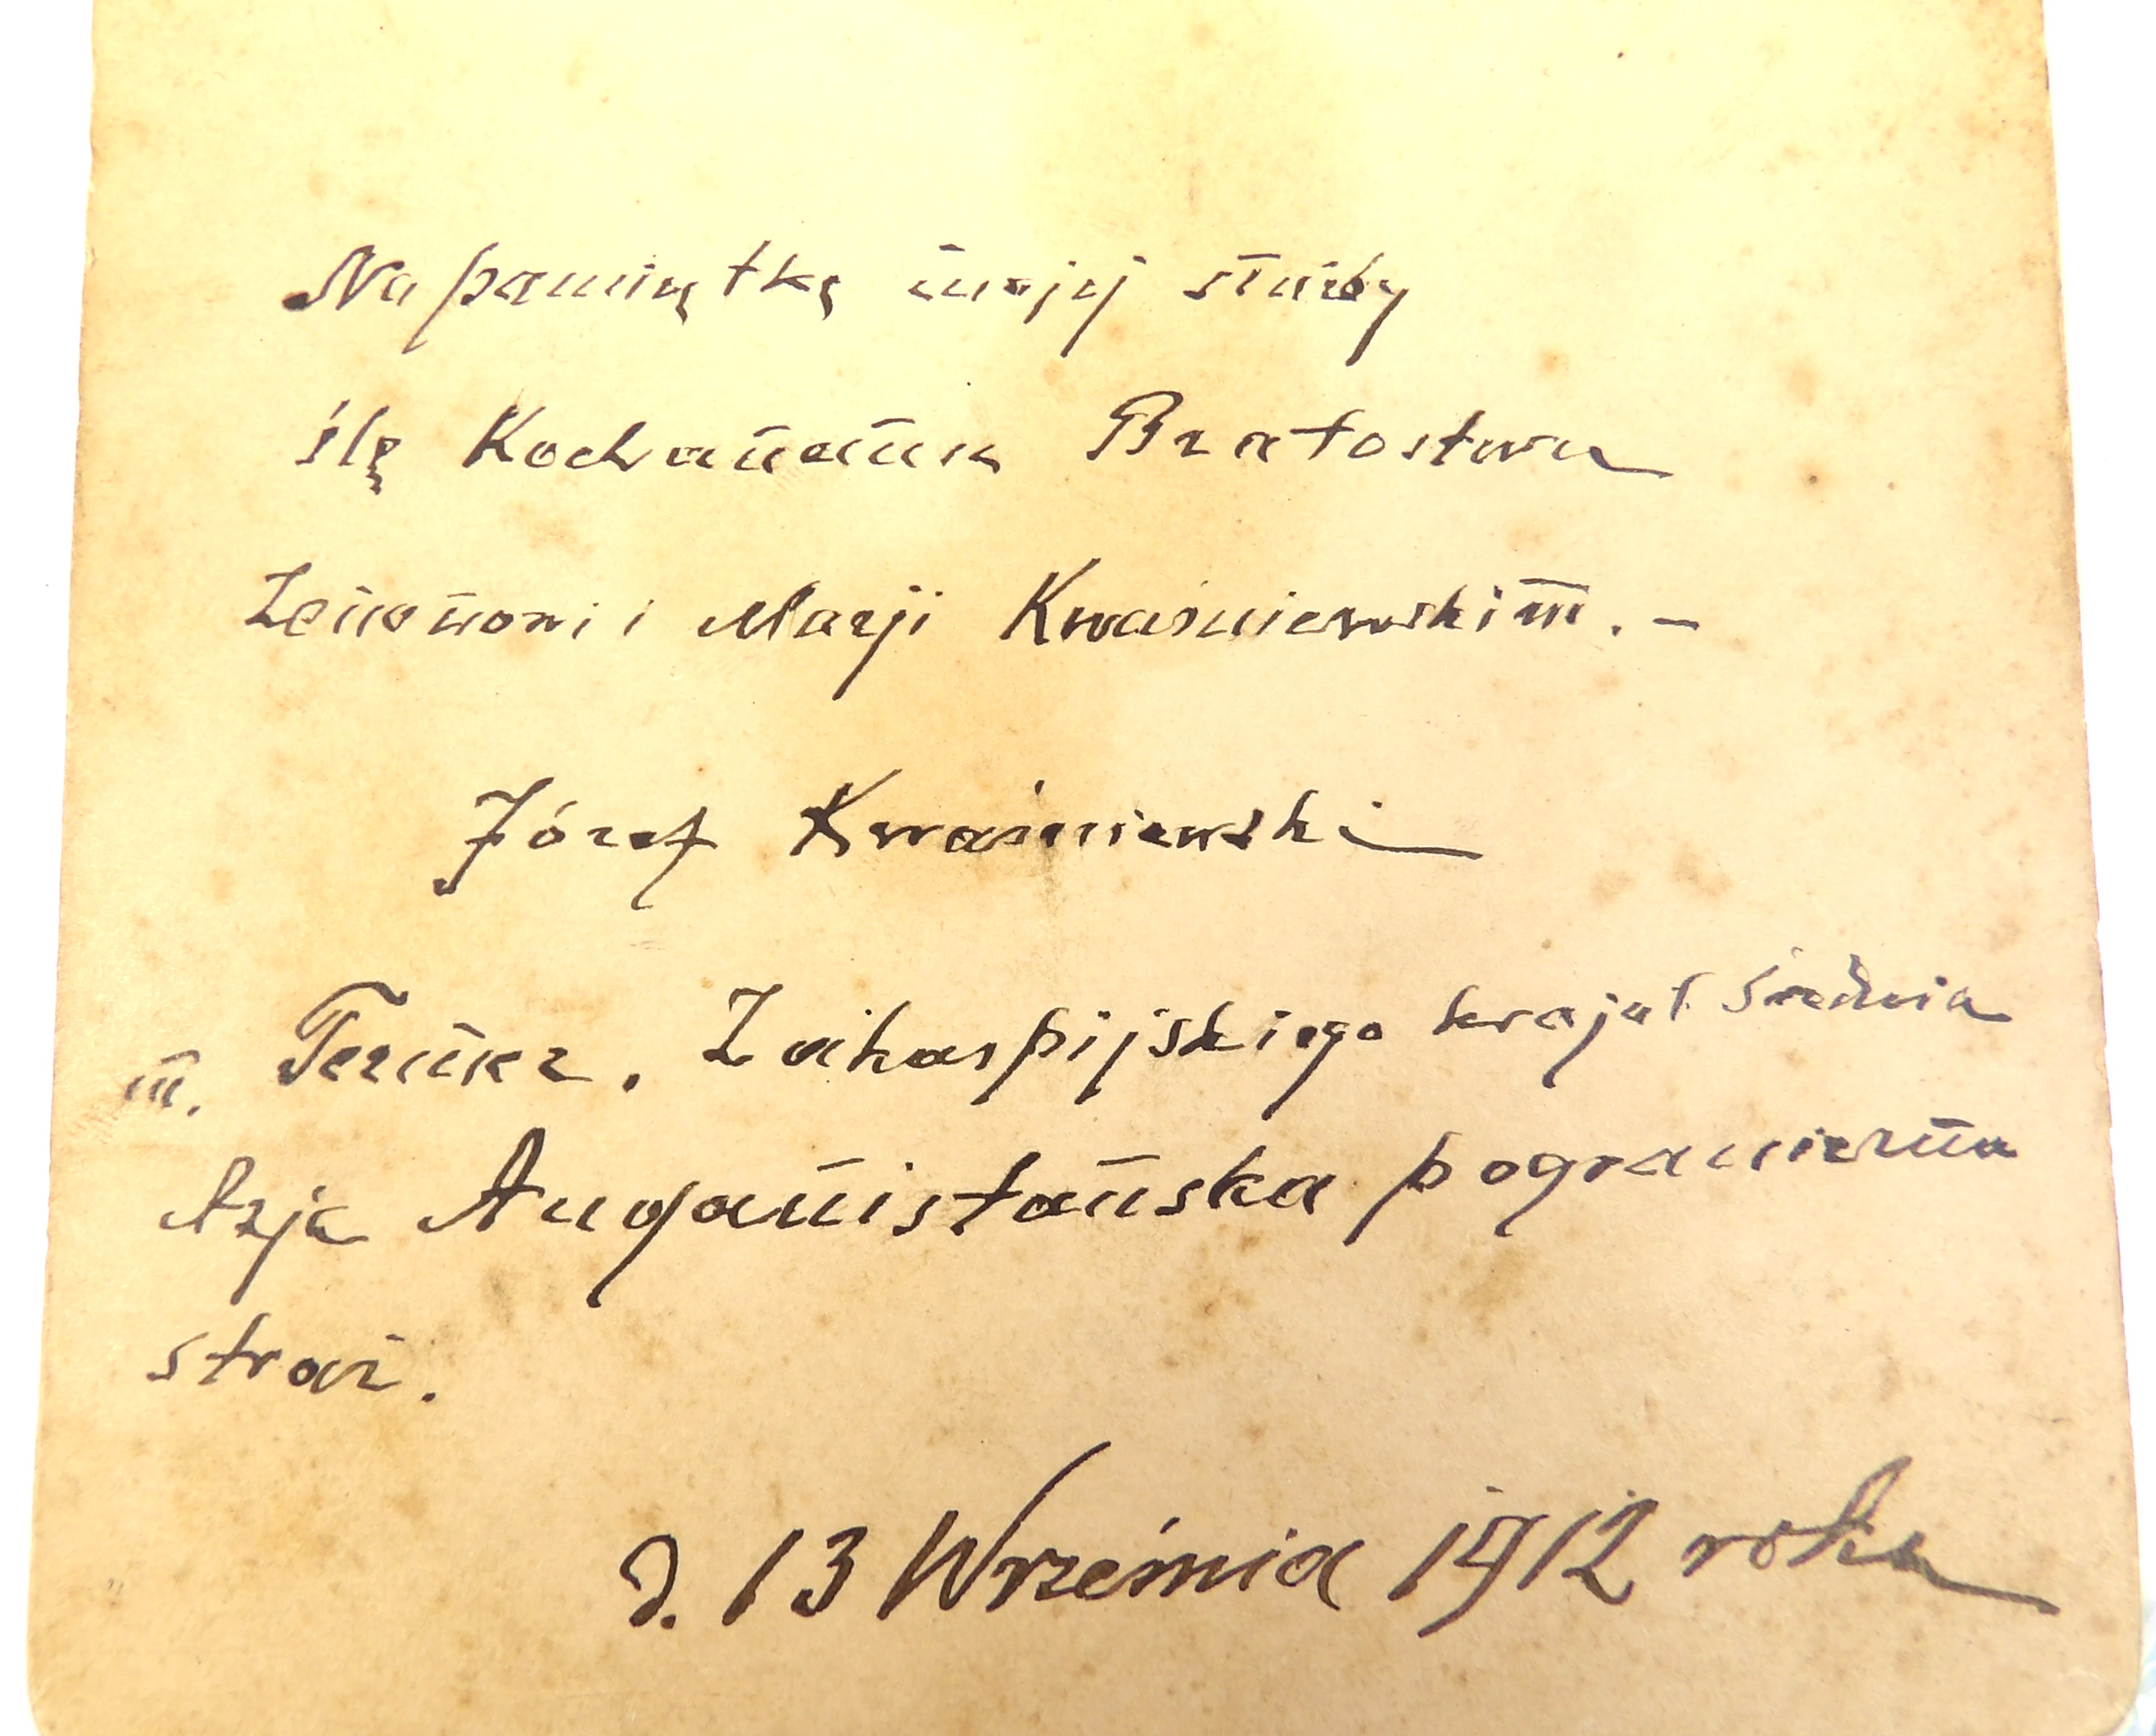 Na pamiątkę mojej służby
ślę Kochanemu Bratostwu
Zenonowi i Marji Kwaśniewskim. –
Józef Kwaśniewski
m. Termez. Zakaspijskiego kraju Średnia
Azja Auganistańska pograniczna
straż.
d. 13 Września 1912 roku